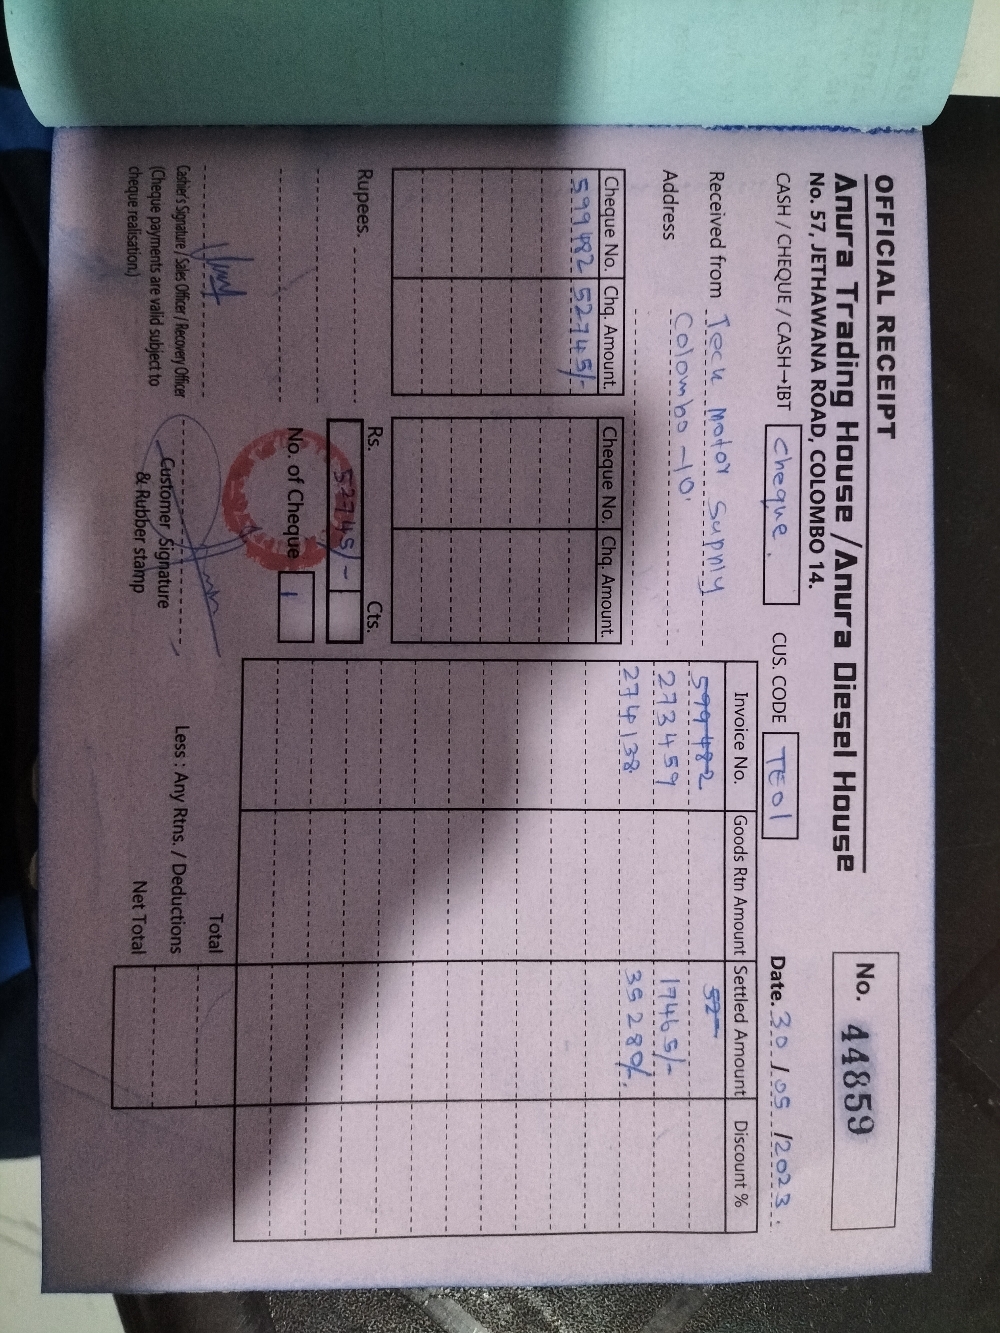 OFFICIAL RECEIPT
Anura Trading House / Anura Diesel House
No. 57, JETHAWANA ROAD, COLOMBO 14.
No. 44859
CASH / CHEQUE / CASH→IBT Cheque.
CUS. CODE TE01
Date. 30 / 05 / 2023.
Received from Tech Motor Supply
Address Colombo -10.
Cheque No. Chq. Amount. Cheque No. Chq. Amount.
599482 52745/-
Rupees.
Rs. Cts.
52745/-
No. of Cheque 1
Cashier's Signature / Sales Officer / Recovery Officer
(Cheque payments are valid subject to
cheque realisation.)
Customer Signature
& Rubber stamp
Invoice No. Goods Rtn Amount Settled Amount Discount %
599482 52
273459 17465/-
274138 35280/-
Total
Less : Any Rtns. / Deductions
Net Total